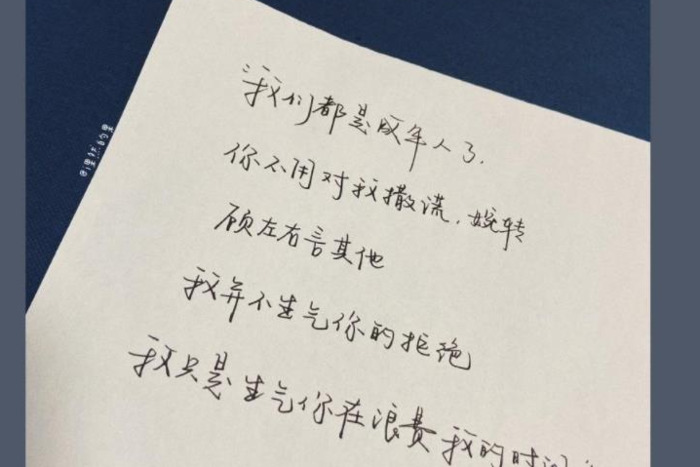 “我们都是成年人了.
你不用对我撒谎,婉转
顾左右言其他
我并不生气你的拒绝
我只是生气你在浪费我的时间”
@理然的里